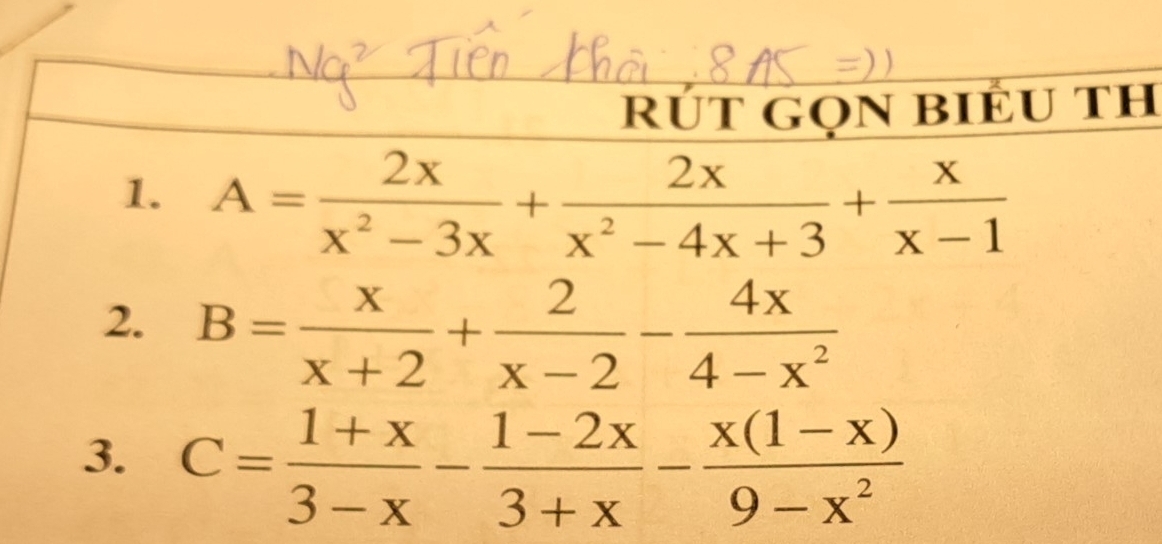 Ng² Tiến Khôi 8A5 =))
RÚT GỌN BIỂU TH
1. A = \frac{2x}{x² - 3x} + \frac{2x}{x² - 4x + 3} + \frac{x}{x - 1}
2. B = \frac{x}{x + 2} + \frac{2}{x - 2} - \frac{4x}{4 - x²}
3. C = \frac{1 + x}{3 - x} - \frac{1 - 2x}{3 + x} - \frac{x(1 - x)}{9 - x²}